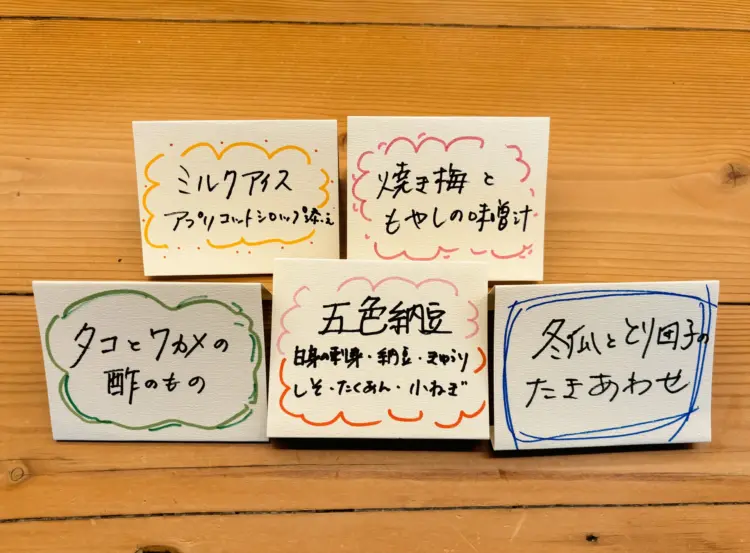 ミルクアイス
アプリコットシロップ添え
焼き梅と
もやしの味噌汁
タコとワカメの
酢のもの
五色納豆
白身の刺身・納豆・きゅうり
しそ・たくあん・小ねぎ
冬瓜ととり団子の
たきあわせ